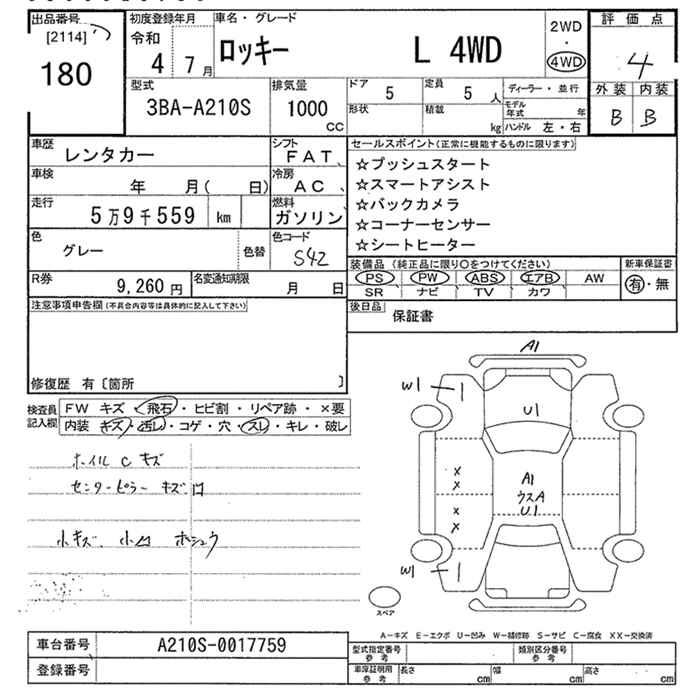 出品番号
[2114]
180
初度登録年月
令和
4 7月
車名・グレード
ロッキー L 4WD
2WD
・
4WD
評価点
4
外装 内装
B B
型式
3BA-A210S
排気量
1000
CC
ドア 5
定員 5 人
形状
積載 kg
ディーラー・並行
モデル年式 年
ハンドル 左・右
車歴 レンタカー
シフト FAT
車検 年 月( 日)
冷房 AC
走行 5万9千559 km
燃料 ガソリン
色 グレー 色替
色コード S42
R券 9,260円
名変通知期限 月 日
セールスポイント(正常に機能するものに限ります)
☆プッシュスタート
☆スマートアシスト
☆バックカメラ
☆コーナーセンサー
☆シートヒーター
装備品(純正品に限り○をつけてください)
PS PW ABS エアB AW
SR ナビ TV カワ
新車保証書
有・無
後日品 保証書
注意事項申告欄(不具合内容等は具体的に記入して下さい)
修復歴 有〔箇所 〕
検査員記入欄
FW キズ・飛石・ヒビ割・リペア跡・×要
内装 キズ・汚レ・コゲ・穴・スレ・キレ・破レ
ホイル C キズ
センターピラー キズ凹
小キズ、小凹 ホシュウ
A1
W1
U1
A1
ウスA
U1
×
×
×
×
W1
スペア
A-キズ E-エクボ U-凹み W-補修跡 S-サビ C-腐食 XX-交換済
車台番号 A210S-0017759
登録番号
型式指定番号 参考
類別区分番号 参考
車庫証明用 参考
長さ cm 幅 cm 高さ cm